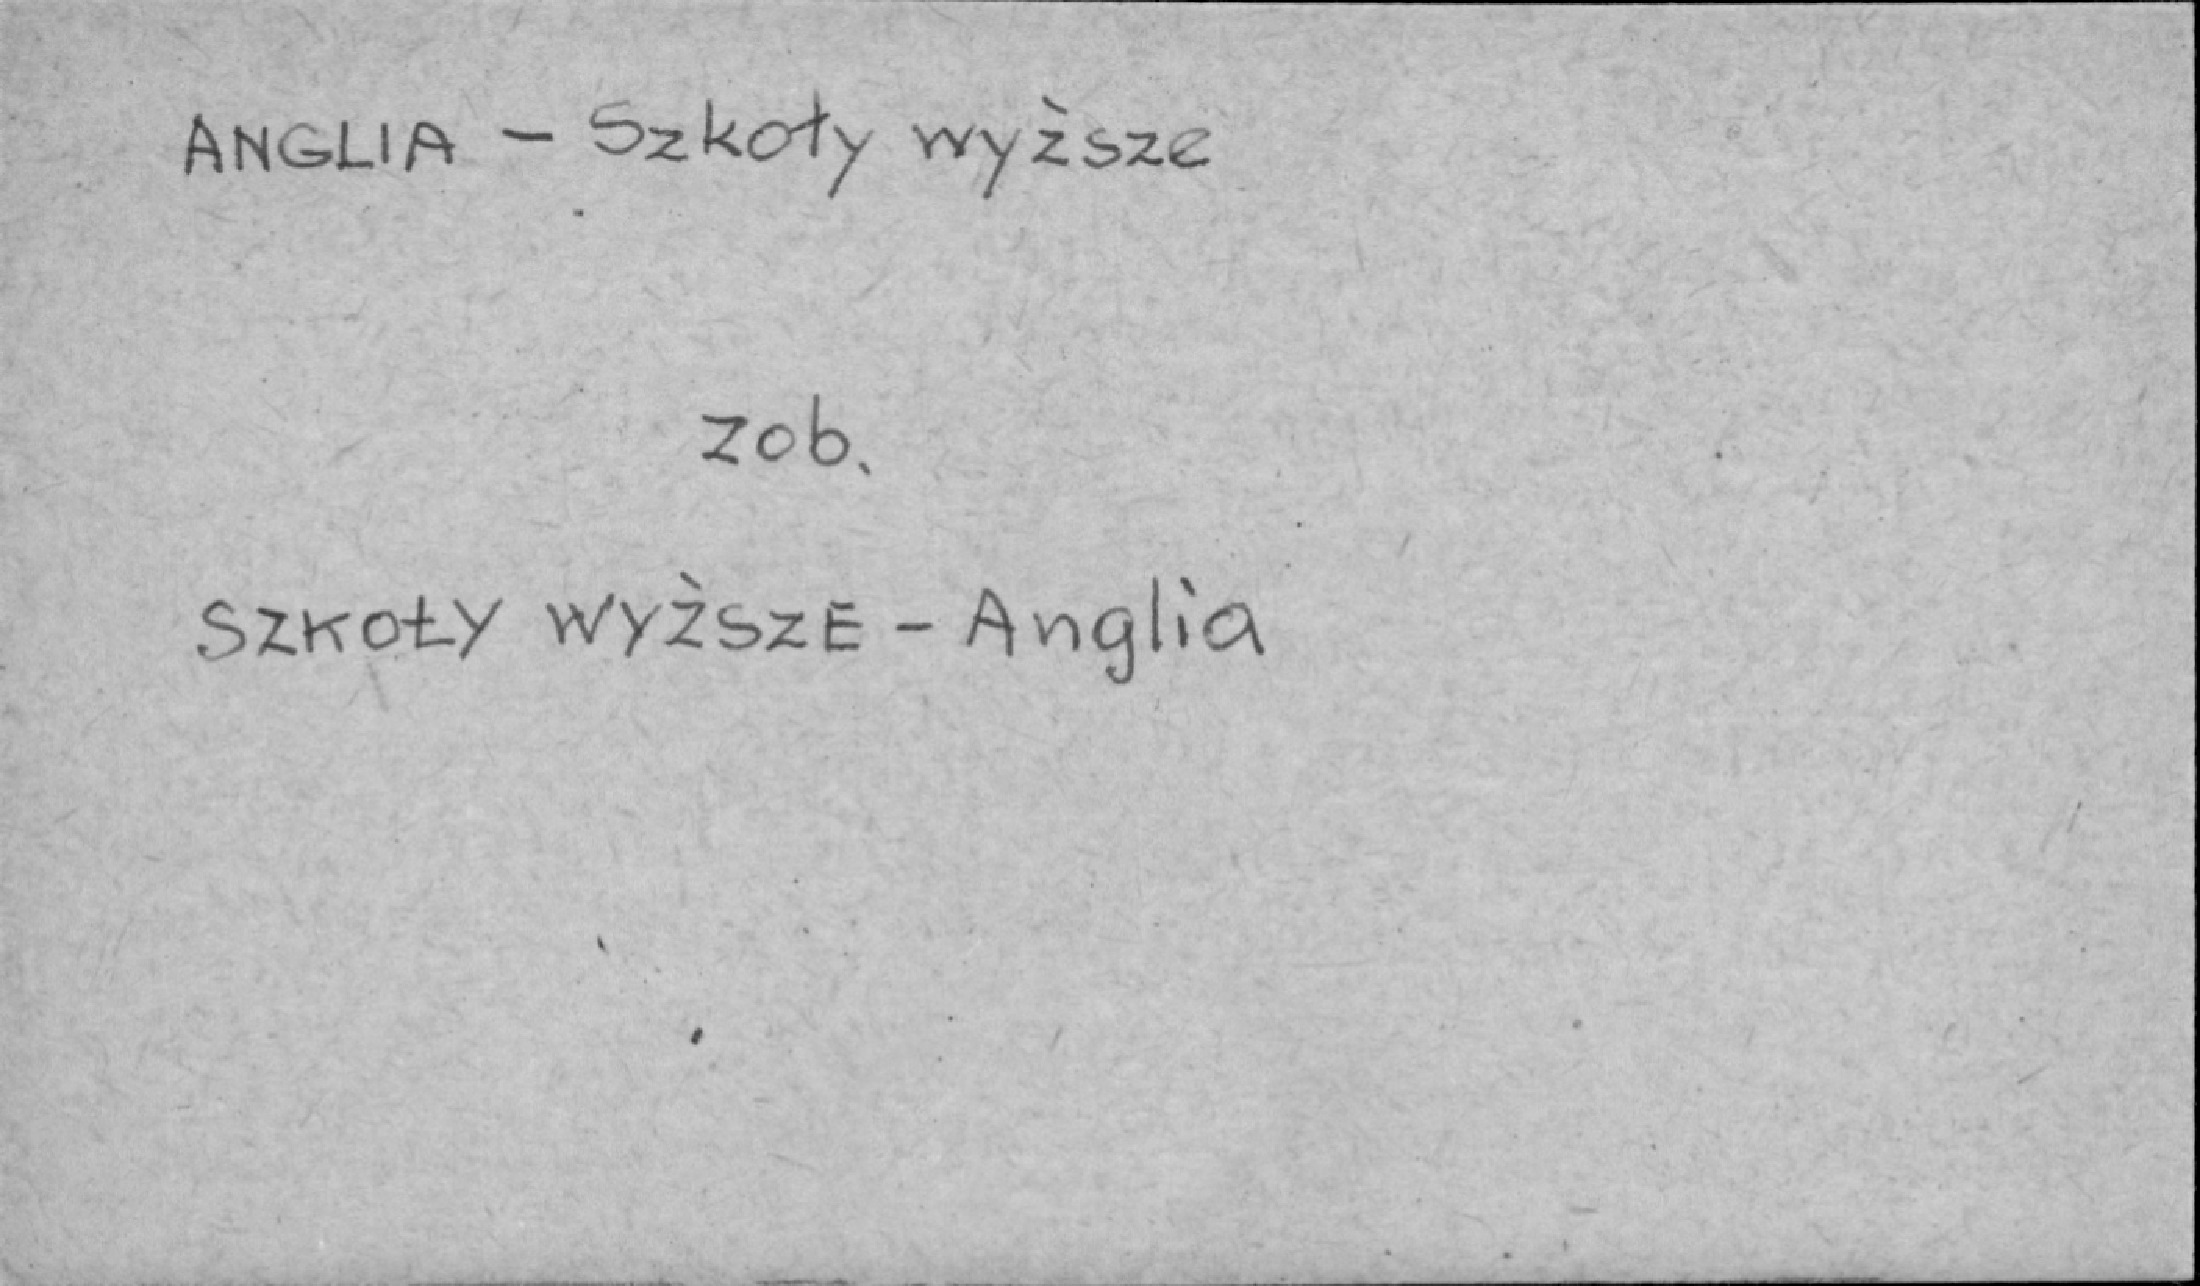 ANGLIA – Szkoły wyższe
zob.
SZKOŁY WYŻSZE – Anglia